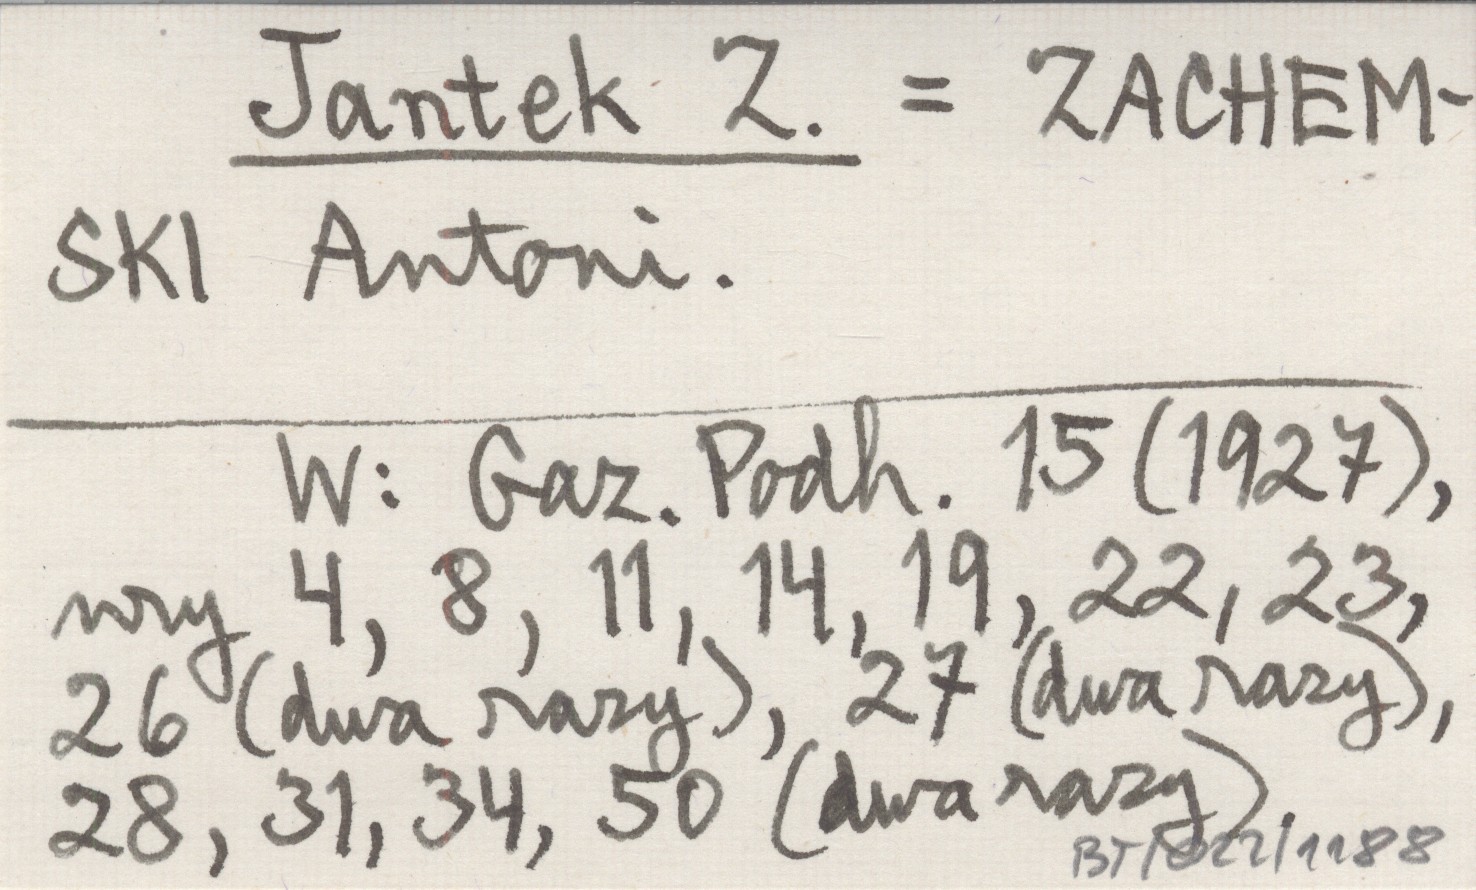 Jantek Z. = ZACHEM-
SKI Antoni.
W: Gaz. Podh. 15 (1927),
nry 4, 8, 11, 14, 19, 22, 23,
26 (dwa razy), 27 (dwa razy),
28, 31, 34, 50 (dwa razy).
BT/022/1188